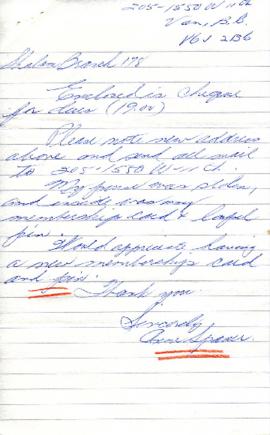 205-1550 W 11 Ch
Van, B.C.
V6J 2B6
Shalom Branch 178
Enclosed is cheque
for dues (19.00)
Please note new address
above and send all mail
to 205-1550 W-11 Ch.
My purse was stolen,
and inside was my
memberships card & lapel
pin.
Would appreciate having
a new memberships card
and pin.
Thank you.
Sincerely